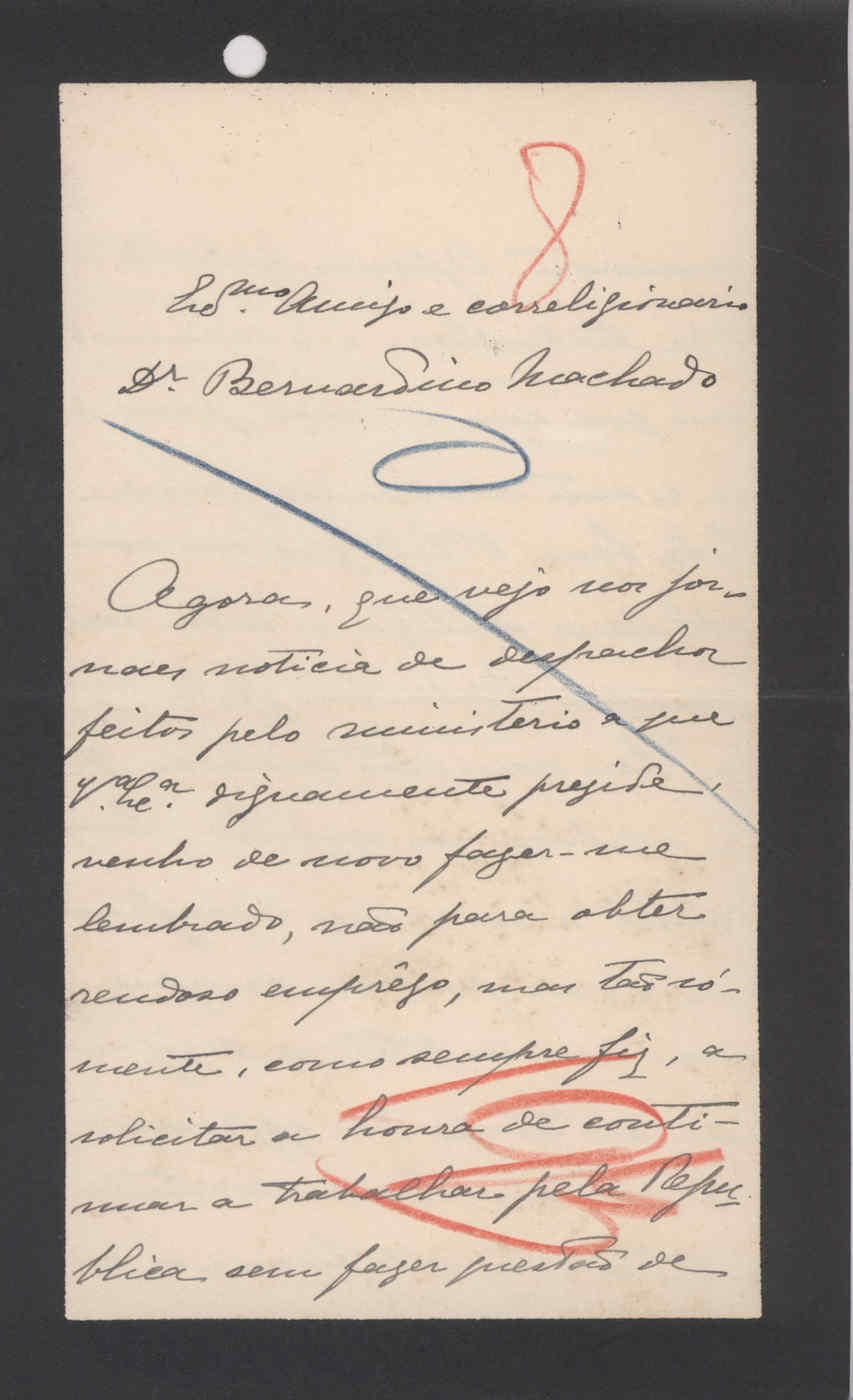 8
Exc.mo Amigo e correligionario
Dr. Bernardino Machado
Agora, que vejo nos jor-
naes noticia de despachos
feitos pelo ministerio a que
V.a Exc.a dignamente preside,
venho de novo fazer-me
lembrado, não para obter
rendoso emprêgo, mas tão só-
mente, como sempre fiz, a
solicitar a honra de conti-
nuar a trabalhar pela Repu-
blica sem fazer questão de